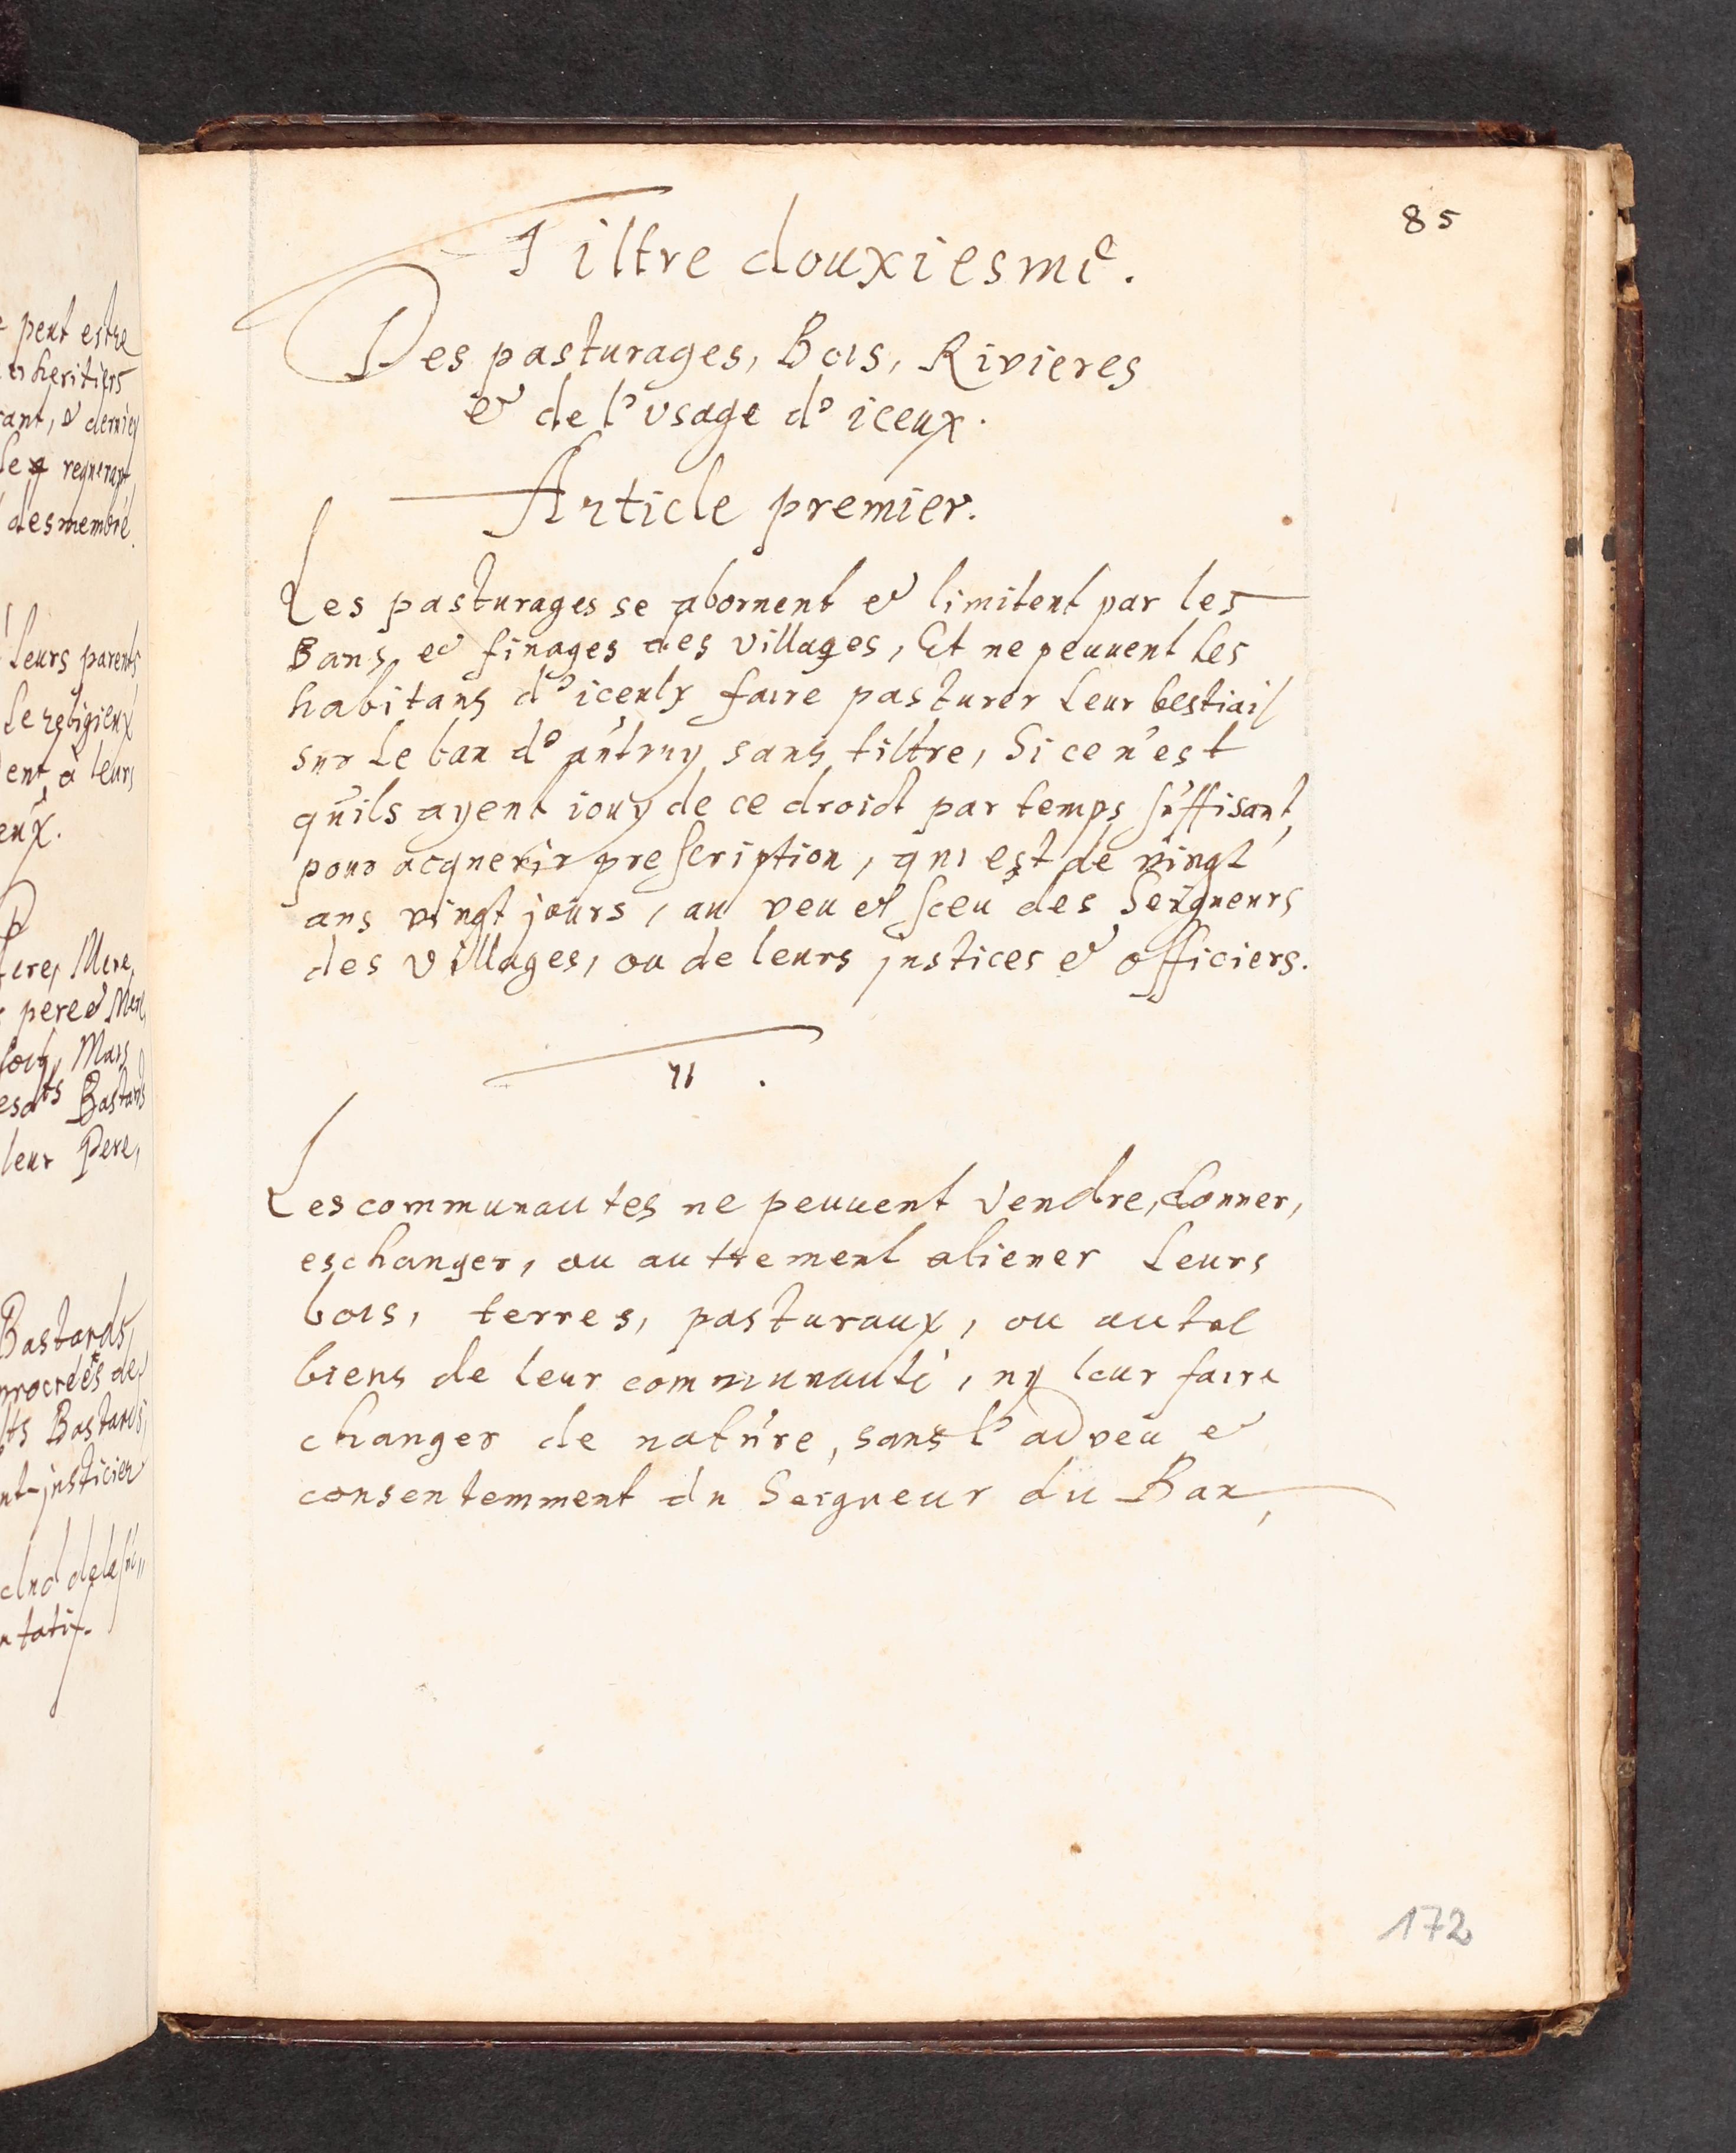 e peut estre
heritiers
rant, & dernier
regnerant,
desmembré.
leurs parents,
le religieux
ent, à leurs
eux.
Mere,
pere & Mere,
Mais
Bastards
leur Pere,
Bastards,
procreés de
Bastards,
nt-justicier
85
Tiltre douxiesme.
Des pasturages, Bois, Rivieres
& de l'vsage d'iceux.
Article premier.
Les pasturages se abornent & limitent par les
Bans, & finages des villages, Et ne peuuent les
habitans d'iceulx faire pasturer leur bestiail
sur le ban d'autruy sans tiltre, Si ce n'est
qu'ils ayent iouy de ce droict par temps suffisant,
pour acquerir prescription, qui est de vingt
ans vingt jours, au veu et sceu des Seigneurs
des villages, ou de leurs justices & officiers.
II.
Les communautes ne peuuent vendre, donner,
eschanger, ou autrement aliener leurs
bois, terres, pasturaux, ou autel
biens de leur communauté, ny leur faire
changer de nature, sans l'adveu &
consentemment du Seigneur du Ban,
172